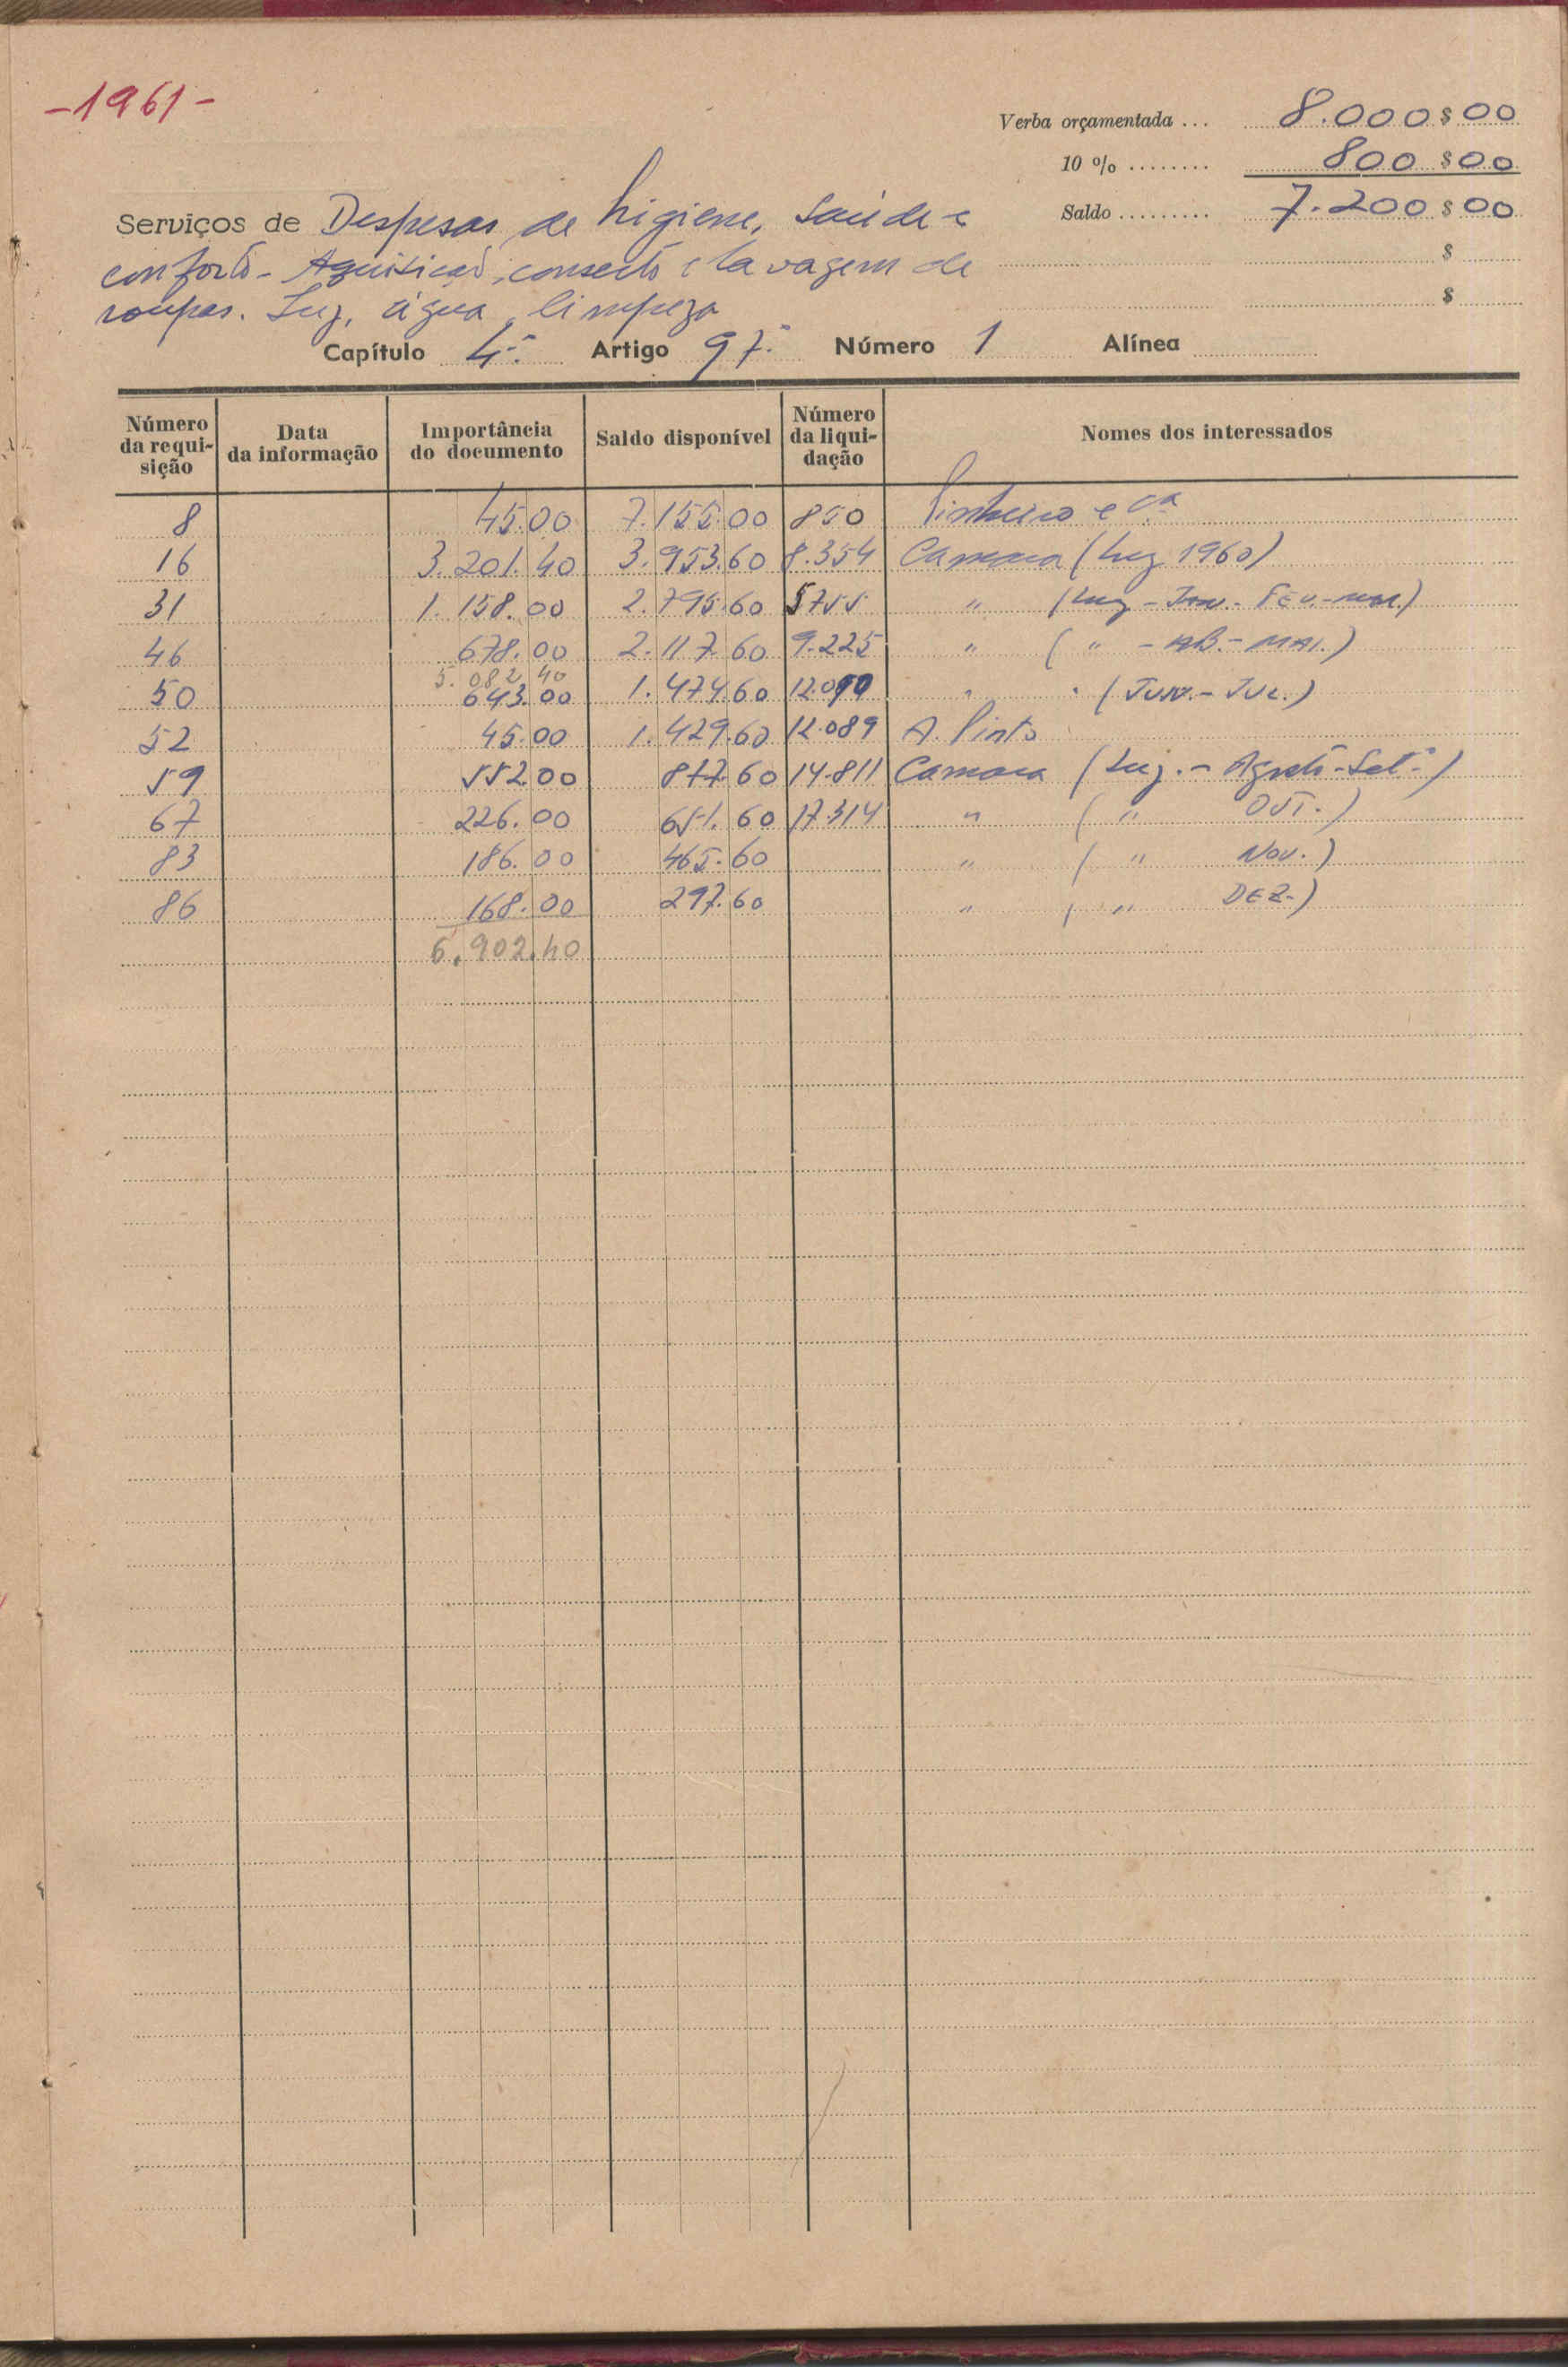 -1961-
Verba orçamentada ... 8.000$00
10 % ........ 800$00
Saldo ......... 7.200$00
$
$
Serviços de Despesas de higiene, saúde e
conforto - Aquisição, conserto e lavagem de
roupas. Luz, água, limpeza
Capítulo 4º Artigo 97º Número 1 Alínea
Número da requi-sição Data da informação Importância do documento Saldo disponível Número da liqui-dação Nomes dos interessados
8 45.00 7.155.00 850 Pinheiro e Cª
16 3.201.40 3.953.60 8.354 Camara (Luz 1960)
31 1.158.00 2.795.60 5755 " (Luz - Jan. - Fev. - mar.)
46 678.00 2.117.60 9.225 " ( " - AB. - MAI.)
5.082.40
50 643.00 1.474.60 12.090 " " (JUN. - JUL.)
52 45.00 1.429.60 12.089 A. Pinto
59 552.00 877.60 14.811 Camara (Luz. - Agosto - Setº)
67 226.00 651.60 17.314 " ( " OUT.)
83 186.00 465.60 " ( " Nov.)
86 168.00 297.60 " ( " DEZ.)
6.902.40